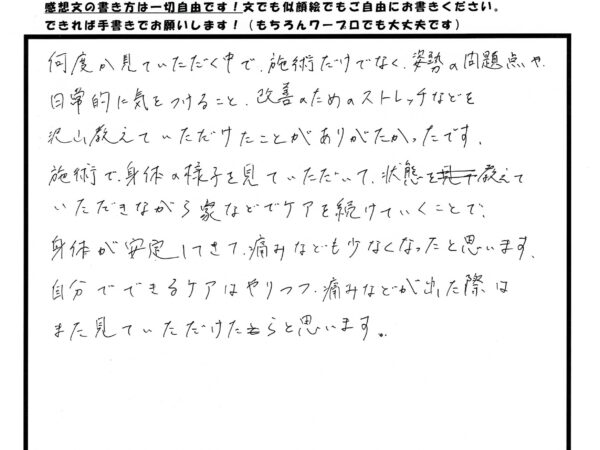 感想文の書き方は一切自由です！文でも似顔絵でもご自由にお書きください。
できれば手書きでお願いします！（もちろんワープロでも大丈夫です）
何度か見ていただく中で、施術だけでなく、姿勢の問題点や、
日常的に気をつけること、改善のためのストレッチなどを
沢山教えていただけたことがありがたかったです。
施術で、身体の様子を見ていただいて、状態を教えて
いただきながら家などでケアを続けていくことで、
身体が安定してきて、痛みなども少なくなったと思います。
自分でできるケアはやりつつ、痛みなどが出た際は
また見ていただけたらと思います。